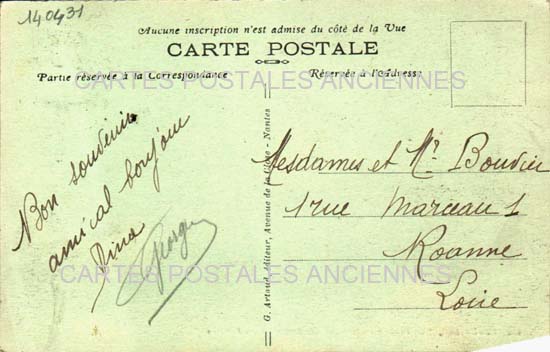 140431
Aucune inscription n'est admise du côté de la Vue
CARTE POSTALE
Partie réservée à la Correspondance
Réservée à l'Adresse
CARTES POSTALES ANCIENNES
Bon souvenir
amical bonjour
Dina
Georges
G. Artaud, éditeur, Avenue de la - Nantes
Mesdames et Mr Bouvier
1 rue Marceau 1
Roanne
Loire
CARTES POSTALES ANCIENNES